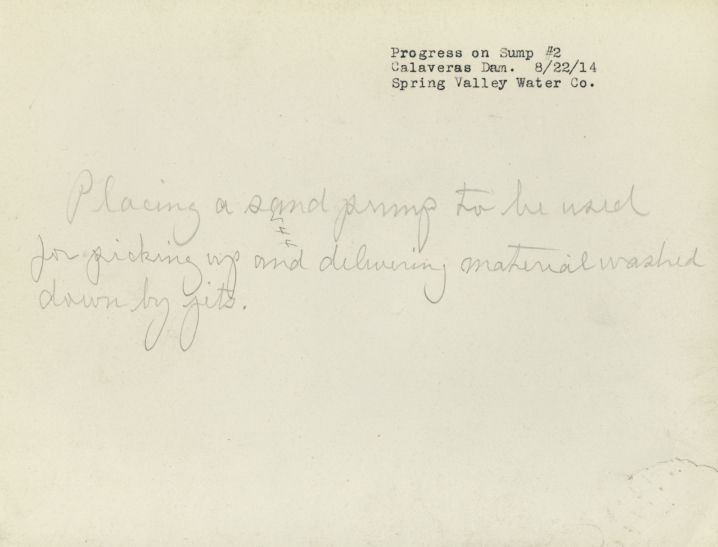 Progress on Sump #2
Calaveras Dam. 8/22/14
Spring Valley Water Co.
Placing a sand pump to be used
for picking up and delivering material washed
down by jets.